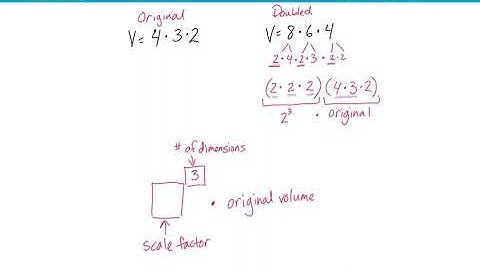 Original
V = 4 · 3 · 2
Doubled
V = 8 · 6 · 4
2 · 4 · 2 · 3 · 2 · 2
(2 · 2 · 2) (4 · 3 · 2)
2³ · original
# of dimensions
3
· original volume
scale factor